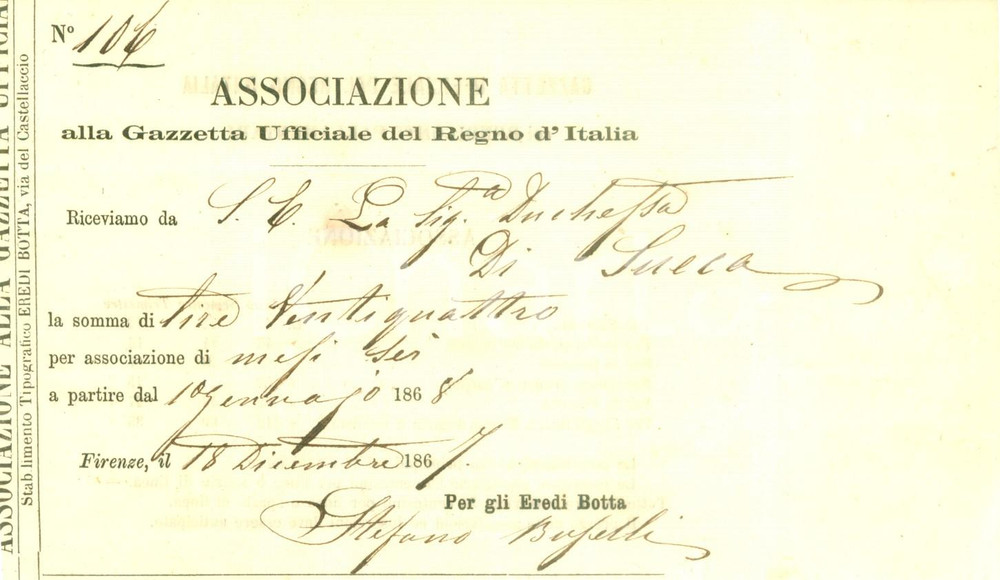 Nº 106
ASSOCIAZIONE
alla Gazzetta Ufficiale del Regno d'Italia
Riceviamo da S. E. La Sig.ra Duchessa
Di Sueca
la somma di lire Ventiquattro
per associazione di mesi sei
a partire dal 1º Gennajo 1868
Firenze, il 18 Dicembre 1867.
Per gli Eredi Botta
Stefano
ASSOCIAZIONE ALLA GAZZETTA UFFICIA
Stabilimento Tipografico EREDI BOTTA, via del Castellaccio